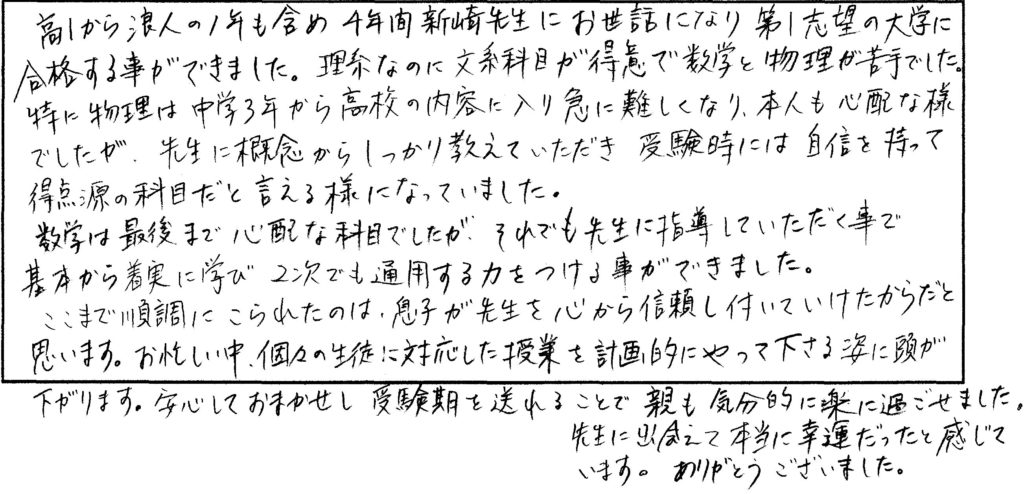 高1から浪人の1年も含め 4年間新崎先生にお世話になり 第1志望の大学に
合格する事ができました。理系なのに文系科目が得意で数学と物理が苦手でした。
特に物理は中学3年から高校の内容に入り急に難しくなり、本人も心配な様
でしたが、先生に概念からしっかり教えていただき 受験時には自信を持って
得点源の科目だと言える様になっていました。
数学は最後まで心配な科目でしたが、それでも先生に指導していただく事で
基本から着実に学び 2次でも通用する力をつける事ができました。
ここまで順調にこられたのは、息子が先生を心から信頼し付いていけたからだと
思います。お忙しい中、個々の生徒に対応した授業を計画的にやって下さる姿に頭が
下がります。安心しておまかせし 受験期を送れることで 親も気分的に楽に過ごせました。
先生に出会えて本当に幸運だったと感じて
います。ありがとうございました。